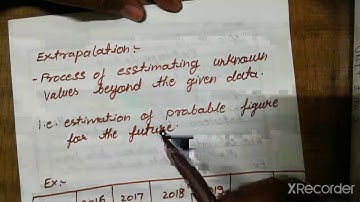 Extrapalation:-
- Process of esstimating unknown
values beyond the given data.
i.e. estimation of probable figure
for the future.
Ex:-
2016 2017 2018 2019
XRecorder